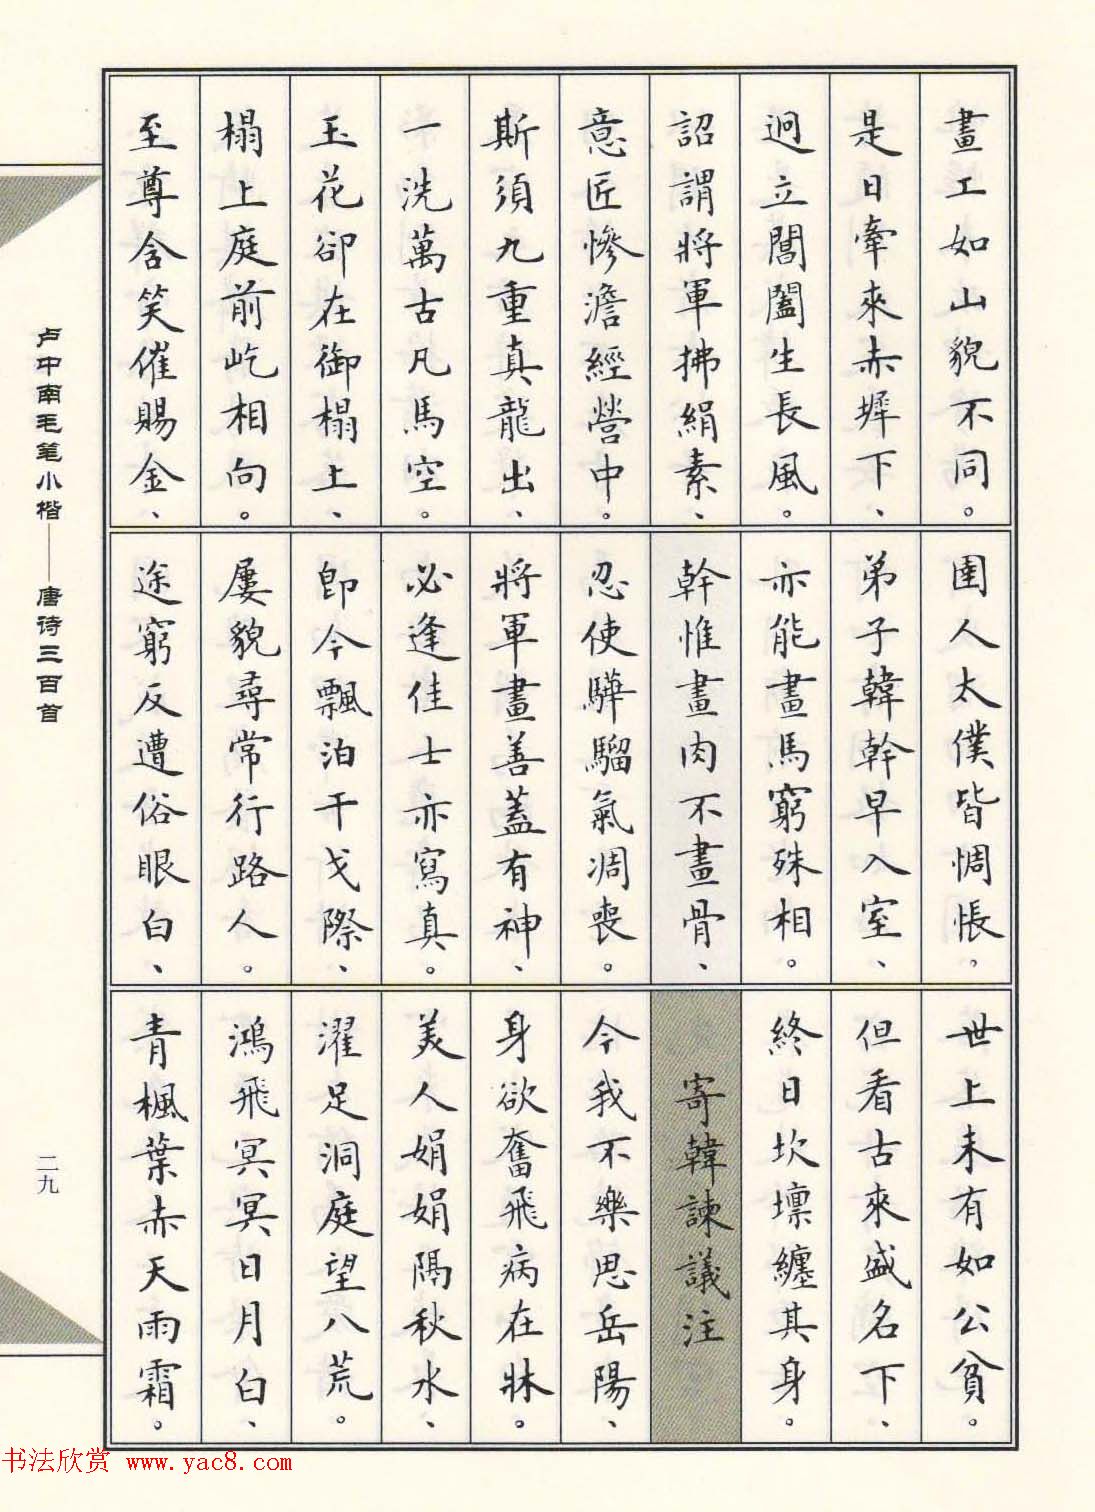 畫工如山貌不同。
是日牽來赤墀下、
迥立閶闔生長風。
詔謂將軍拂絹素、
意匠慘澹經營中。
斯須九重真龍出、
一洗萬古凡馬空。
玉花卻在御榻上、
榻上庭前屹相向。
至尊含笑催賜金、
圉人太僕皆惆悵，
弟子韓幹早入室、
亦能畫馬窮殊相。
幹惟畫肉不畫骨、
忍使驊騮氣凋喪。
將軍畫善蓋有神、
必逢佳士亦寫真。
即今飄泊干戈際、
屢貌尋常行路人。
途窮反遭俗眼白、
世上未有如公貧。
但看古來盛名下、
終日坎壈纏其身。
寄韓諫議注
今我不樂思岳陽、
身欲奮飛病在牀。
美人娟娟隔秋水、
濯足洞庭望八荒。
鴻飛冥冥日月白、
青楓葉赤天雨霜。
卢中南毛笔小楷——唐诗三百首
二九
书法欣赏 www.yac8.com